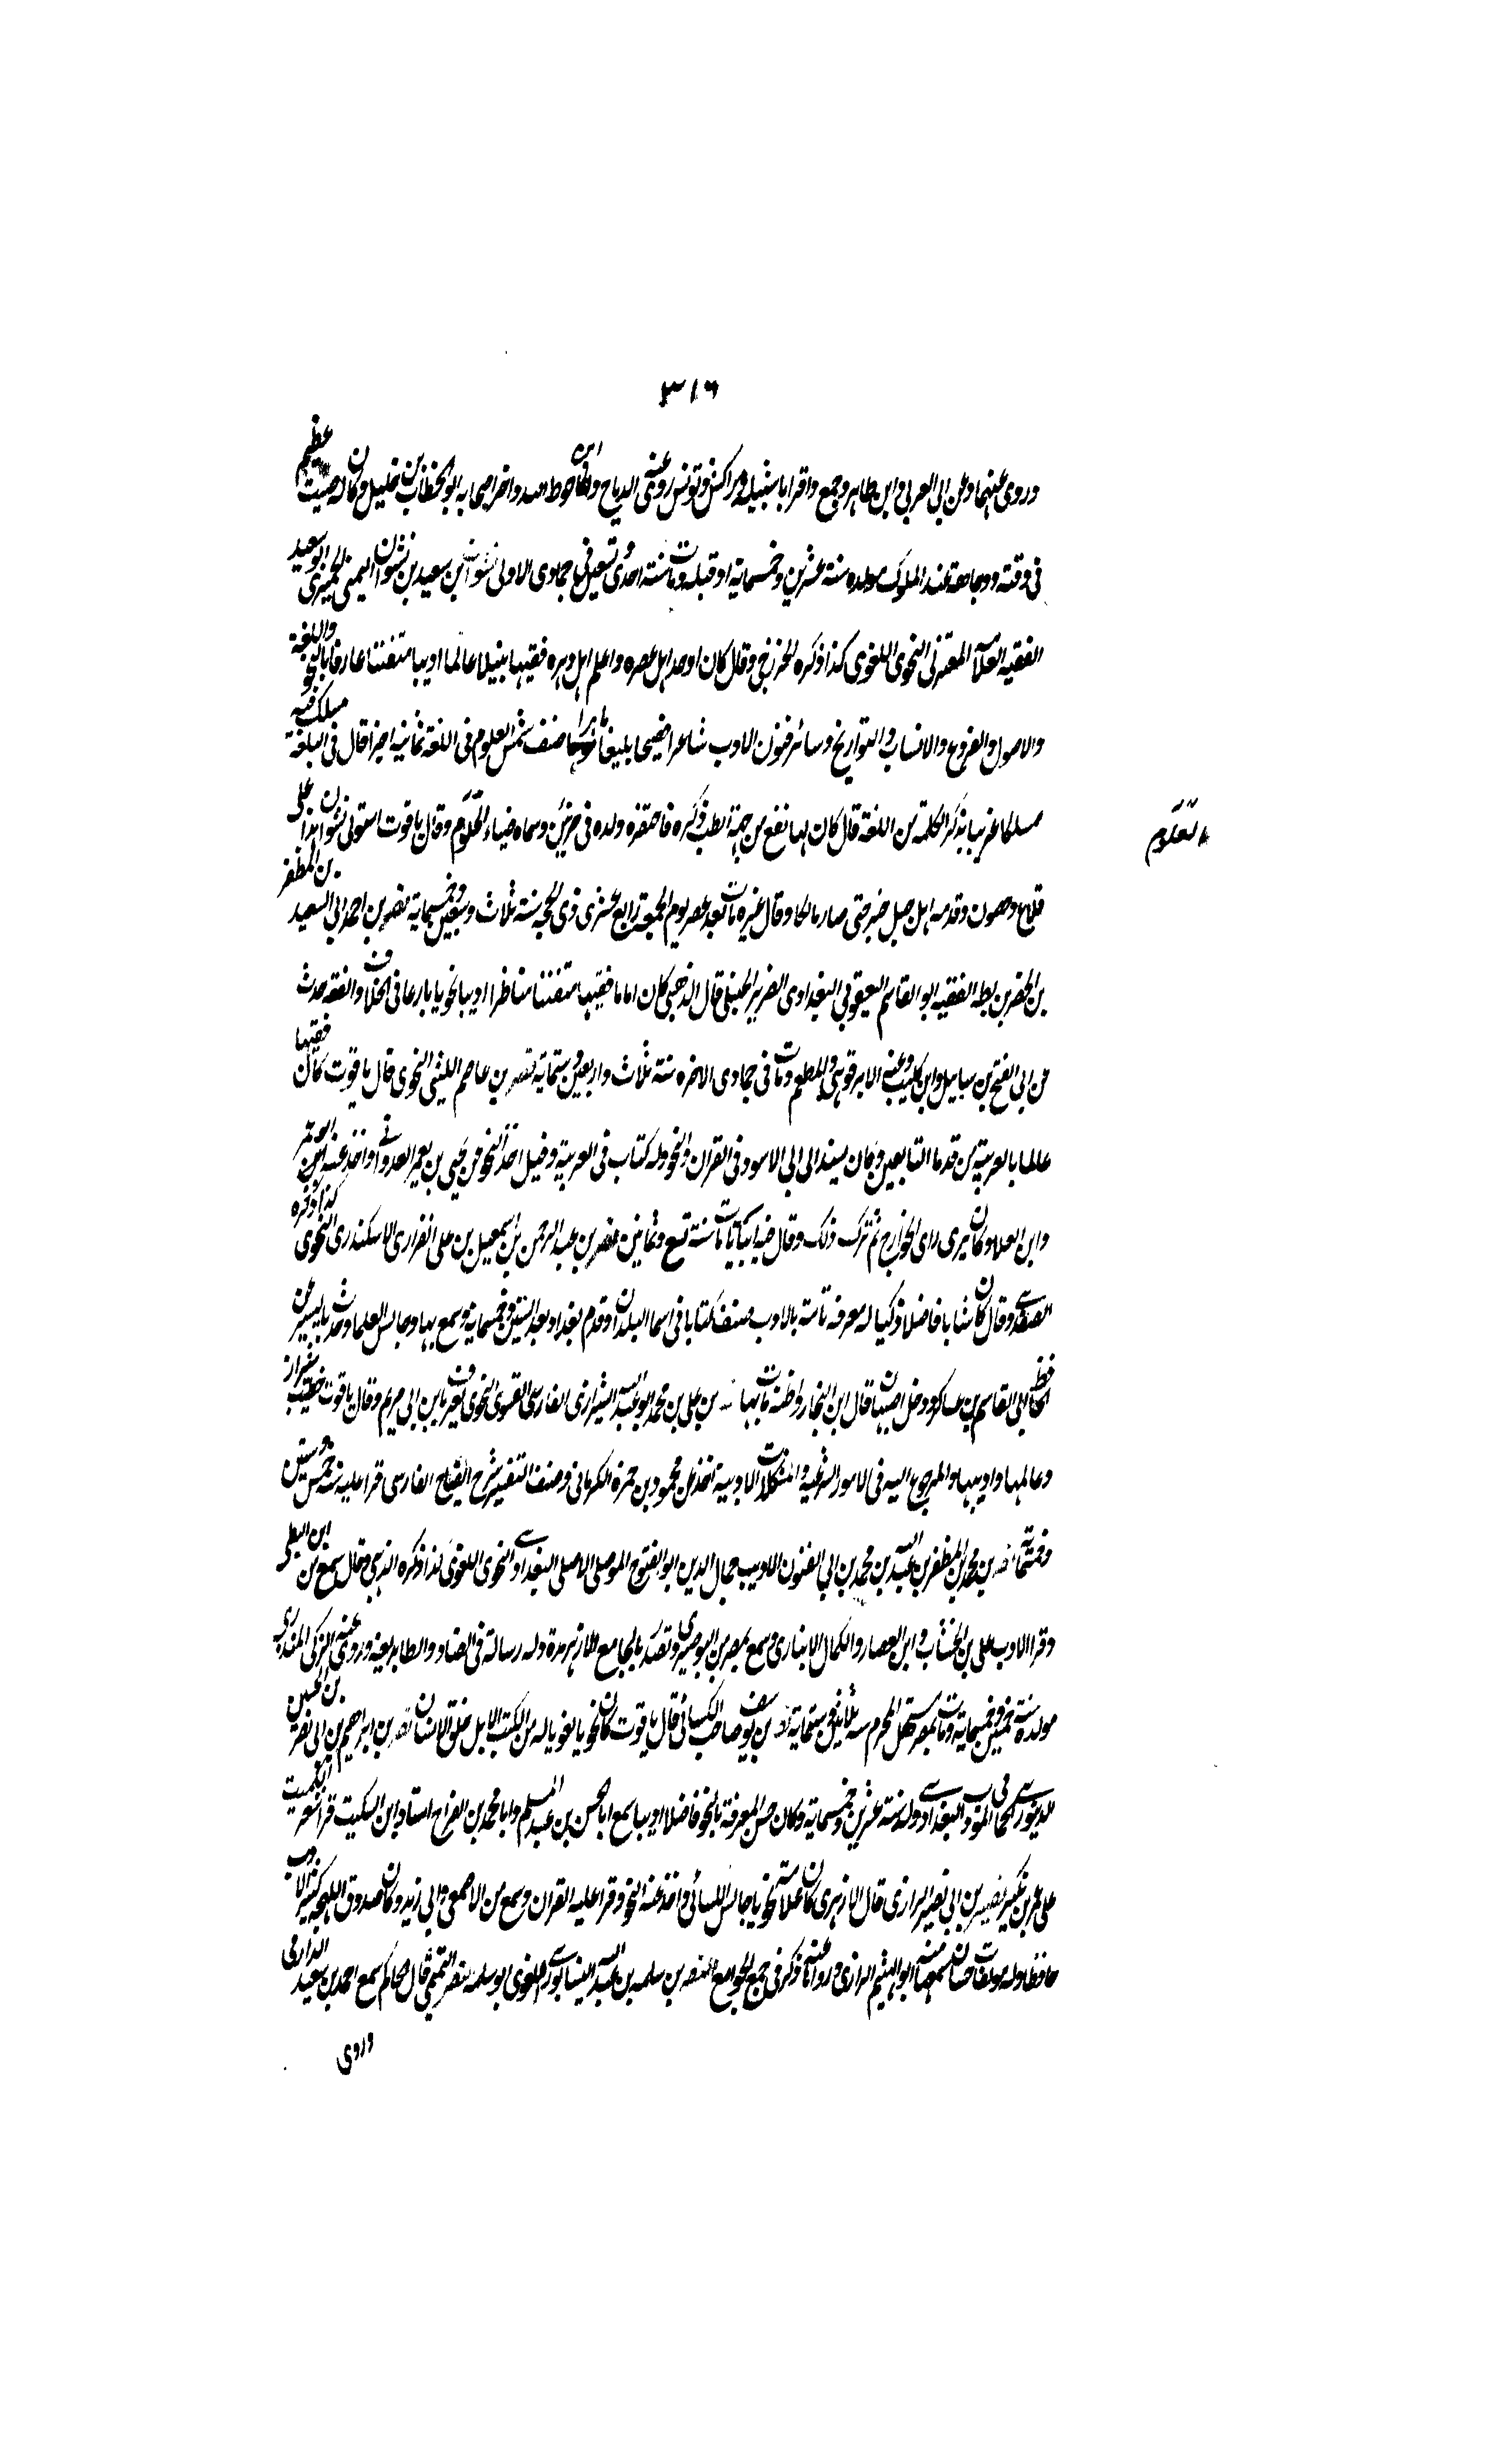 ٣١٦
وروى عنهما وعن ابي العربي وابن طاهر وجمع واقرا باشبيلية ومراكش وتونس روى عنه الدباج وابنا حوط الله واخر اصحابه ابو الخطاب بن خليل وكان له صيت عظيم
في وقته ووجاهة عند الملوك مولده سنة عشرين وخمسماية او قبله ومات سنة احدى وتسعين في جمادى الاولى نشوان بن سعيد بن نشوان اليمنى الحميرى ابو سعيد
الفقيه العلامة المعتزلى النحوى اللغوى كذا ذكره الخزرجى وقال كان اوحد اهل عصره واعلم اهل دهره فقيها نبيلا عالما اديبا متفننا عارفا بالنحو واللغة
والاصول والفروع والانساب والتواريخ وسائر فنون الادب شاعرا فصيحا بليغا صنف شمس العلوم في اللغة ثمانية اجزا قال في البلغة سلك فيه
مسلكا غريبا يذكر الكلمة من اللغة قال كان لها نفع من جهة الطب ذكره فاختصره ولده في جزئين وسماه ضياء الحلوم وقال ياقوت استولى نشوان هذا على
العلوم
قلاع وحصون وقدمه اهل جبل صبر حتى صار ملكا وقال غيره مات بعد عصر يوم الجمعة رابع عشرى ذى الحجة سنة ثلاث وسبعين وخمسماية نصر بن احمد ابي السعيد بن المظفر
بن الخضر بن بطه الفقيه ابو القاسم البعقوبي البغدادى الضرير الحنبلى قال الذهبى كان اماما فقيها متفننا مناظرا اديبا نحويا بارعا في الخلاف والفقه حدث
عن ابي الفتح بن شاتيل وابن كليب وعنه الابرقوهى والمطعم ومات في جمادى الاخره سنة ثلاث واربعين وستماية نصر بن عاصم الليثى النحوى قال ياقوت كان فقيها
عالما بالعربية من قدما التابعين وكان يسند الى ابي الاسود في القران والنحو وله كتاب في العربية وقيل اخذ النحو عن يحيى بن يعمر العدوانى واخذ عنه ابو عمرو
وابن العلا وكان يرى راى الخوارج ثم ترك ذلك وقال فيه ابياتا مات سنة تسع وثمانين نصر بن عبد الرحمن بن اسمعيل بن على الفزارى الاسكندرى النحوى كذا ذكره
الصفدى وقال كان شابا فاضلا ذكيا له معرفة تامة بالادب صنف كتابا في اسما البلدان وقدم بغداد بعد الستين وخمسماية وسمع بها وجالس العلما وحدث باليسير عن
الحافظ ابي القاسم بن عساكر ودخل اصبهان قال ابن النجار واظنه مات بها بن على بن محمد ابو عبد الله الشيرازى الفارسى الفسوى النحوى يعرف بابن ابي مريم وقال ياقوت خطيب شيراز
وعالمها واديبها والمرجوع اليه في الامور الشرعية والمشكلات الادبية اخذ عن محمود بن حمزة الكرمانى وصنف التفسير شرح الايضاح الفارسى قرا عليه سنة خمس وستين
وخمسماية بن محمد بن المظفر بن عبد الله بن محمد بن ابي الفنون الاديب جمال الدين ابو الفتوح الموصلى الاصل البغدادى النحوى اللغوى كذا ذكره الذهبى وقال سمع من ابن البطى
وقرا الادب على بن الخشاب وابن العصار والكمال الانبارى وسمع بمصر من البوصيرى وتصدر بالجامع الازهر مدة وله رسالة في الضاد والظا بديعة وروى عنه الزكى المنذرى
مولده سنة خمسين وخمسماية ومات بمصر مستهل المحرم سنة ثلاثين وستماية بن يوسف صاحب الكسائى قال ياقوت كان نحويا لغويا له من الكتب الابل خلق الانسان نصر بن ابراهيم بن ابي نصر بن الحسين
الدينورى المؤدب البغدادى ولد سنة عشرين وخمسماية وكان حسن المعرفة بالنحو فاضلا اديبا سمع ابا الحسن بن عبد السلم وابا محمد بن الفراج استاد ابن السكيت قرا شعر الكميت
على عمر بن بكير نصير بن ابي نصير الرازى قال الازهرى كان علامة نحويا جالس الكسائى واخذ عنه النحو وقرا عليه القران وسمع من الاصمعى وابي زيد وكان صدوق اللهجة كثير الادب
حافظا وله مولفات حسان سمعها منه ابو الهيثم الرازى ورواها عنه ذكر في جمع الجوامع النضر بن سلمه بن عبد الله النيسابورى اللغوى ابو سلمه نضر التميمى قال الحاكم سمع احمد بن سعيد الدارمى
وروى